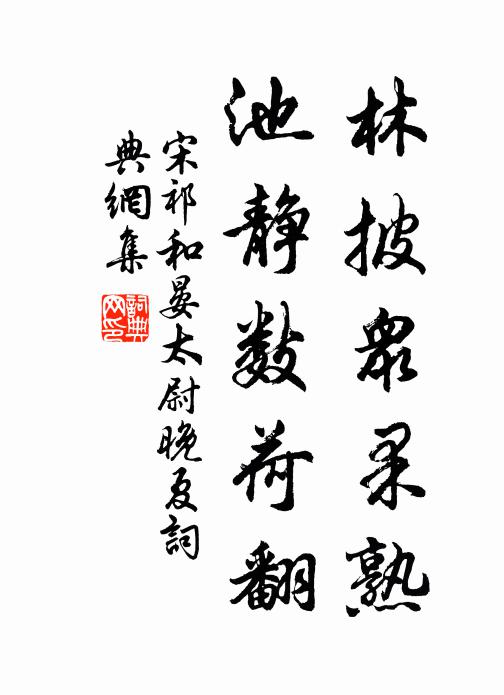 林披眾果熟
池静数荷翻
宋祁和晏太尉晚夏詞
典網集
詞典
网印